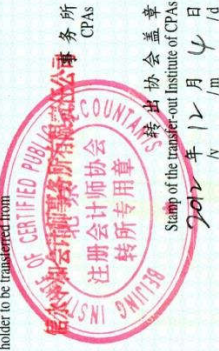 holder to be transferred from
信永中和会计师事务所有限责任公司
事务所
CPAs
BEIJING INST OF CERTIFIED PUBLIC COUNTANTS
北京
注册会计师协会
转所专用章
转出协会盖章
Stamp of the transfer-out Institute of CPAs
2012 年 12 月 4 日
/y /m /d